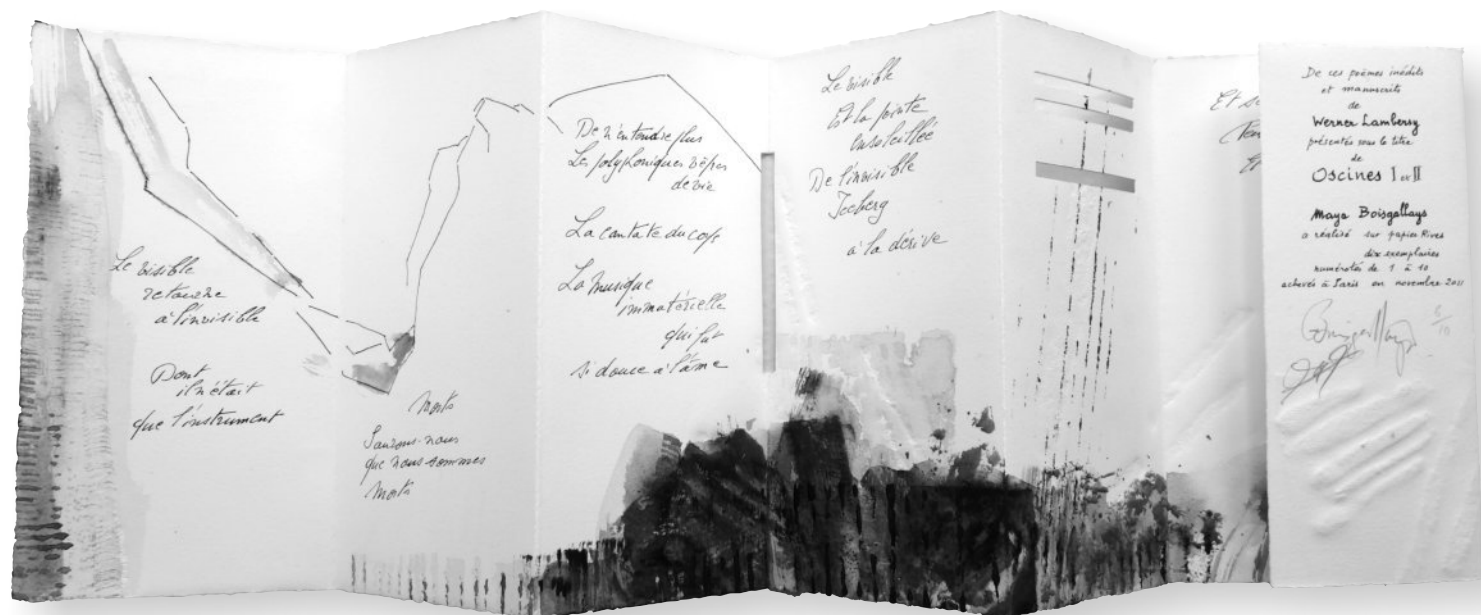 Le visible
retourne
à l'invisible
Dont
il n'était
que l'instrument
Morts
Saurons-nous
que nous sommes
Morts
De n'entendre plus
Les polyphoniques vêpres
de vie
La cantate du corps
La musique
immatérielle
qui fut
si douce à l'âme
Le visible
Est la pointe
Ensoleillée
De l'invisible
Iceberg
à la dérive
Et
De ces poèmes inédits
et manuscrits
de
Werner Lambersy
présentés sous le titre
de
Oscines I et II
Maya Boisgallays
a réalisé sur papier Rives
dix exemplaires
numérotés de 1 à 10
achevés à Paris en novembre 2011
Boisgallays
6/10